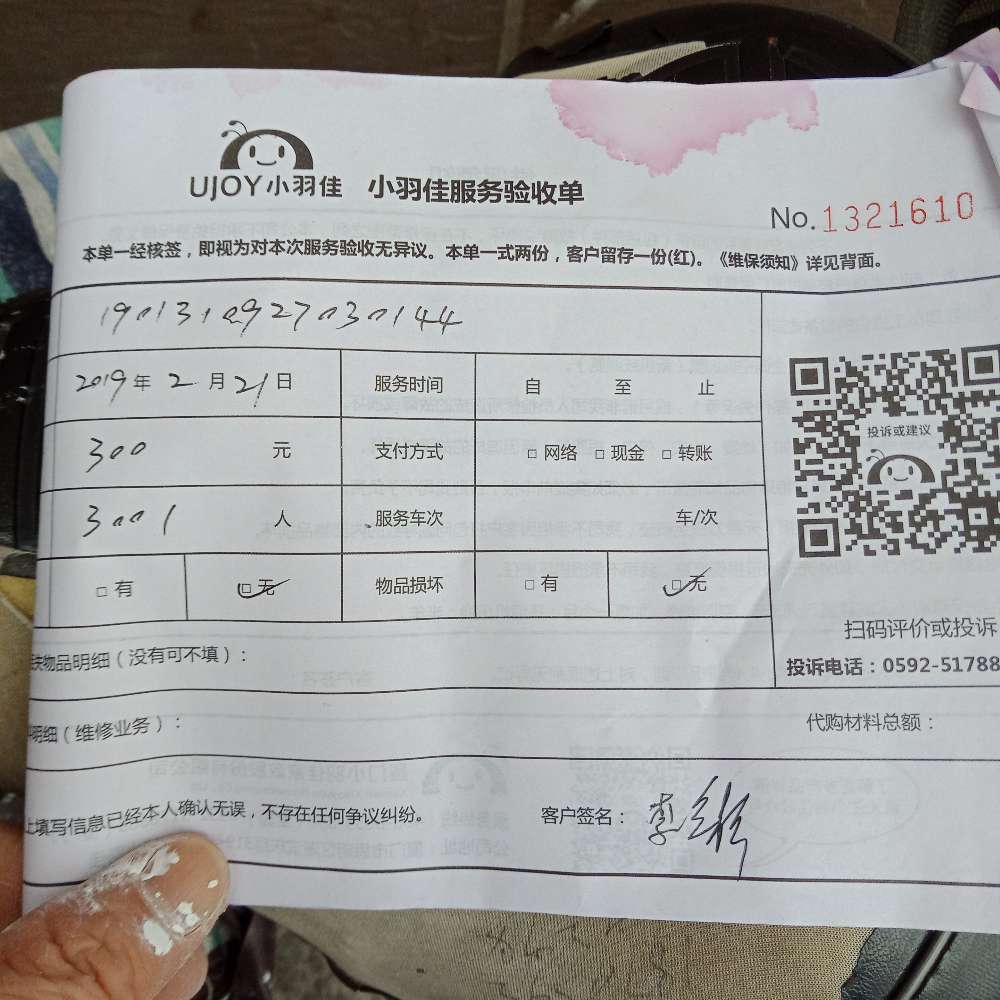 UJOY小羽佳 小羽佳服务验收单
No.1321610
本单一经核签，即视为对本次服务验收无异议。本单一式两份，客户留存一份(红)。《维保须知》详见背面。
1901310927030144
2019年2月21日 服务时间 自 至 止
300 元 支付方式 □ 网络 □ 现金 □ 转账
3001 人 服务车次 车/次
□ 有 □ 无 物品损坏 □ 有 □ 无
投诉或建议
扫码评价或投诉
投诉电话：0592-51788
物品明细（没有可不填）：
明细（维修业务）： 代购材料总额：
上填写信息已经本人确认无误，不存在任何争议纠纷。 客户签名：李